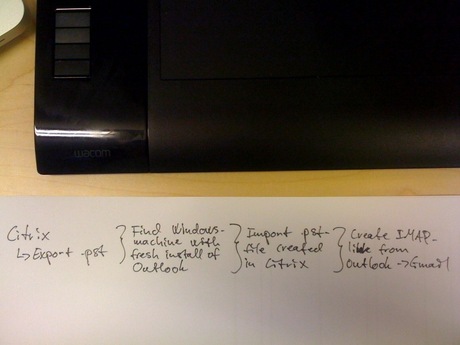 wacom
Citrix
↳ Export .pst
Find Windows-
machine with
fresh install of
Outlook
Import pst-
file created
in Citrix
Create IMAP-
link from
Outlook -> Gmail